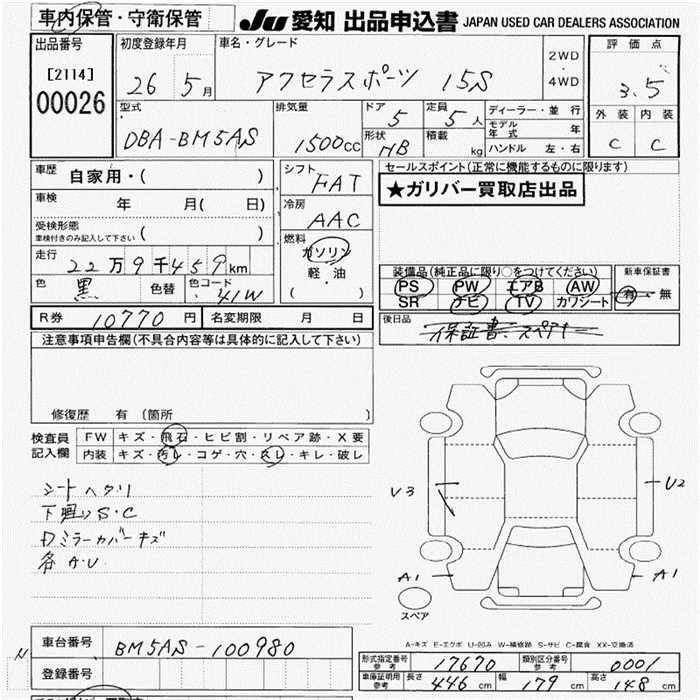 車内保管・守衛保管
JU 愛知 出品申込書 JAPAN USED CAR DEALERS ASSOCIATION
出品番号
[2114]
00026
初度登録年月
26 5月
車名・グレード
アクセラスポーツ 15S
2WD
・
4WD
評価点
3.5
外装 内装
C C
型式
DBA-BM5AS
排気量
1500cc
ドア
5
定員
5人
形状
HB
積載
kg
ディーラー・並行
モデル年式 年
ハンドル 左・右
車歴
自家用・( )
車検 年 月( 日)
受検形態
車検付きのみ記入して下さい ( )
走行
22万9千459km
色
黒
色替
色コード
41W
シフト
FAT
冷房
AAC
燃料
ガソリン
軽・油
( )
セールスポイント(正常に機能するものに限ります)
★ガリバー買取店出品
装備品(純正品に限り○をつけてください)
PS PW エアB AW
SR ナビ TV カワシート
新車保証書
有・無
R券 10770円
名変期限 月 日
後日品
保証書、スペアキー
注意事項申告欄(不具合内容等は具体的に記入して下さい)
修復歴 有 〔箇所 〕
検査員
記入欄
FW キズ・飛石・ヒビ割・リペア跡・X要
内装 キズ・汚レ・コゲ・穴・スレ・キレ・破レ
シートヘタリ
下廻りS・C
ミラーカバーキズ
各A・U
V3
U2
A1
A1
スペア
A-キズ E-エクボ U-凹み W-補修跡 S-サビ C-腐食 XX-交換済
N
車台番号
BM5AS-100980
登録番号
形式指定番号 参考
17670
類別区分番号 参考
0001
車庫証明用 参考
長さ 446cm
幅 179cm
高さ 148cm